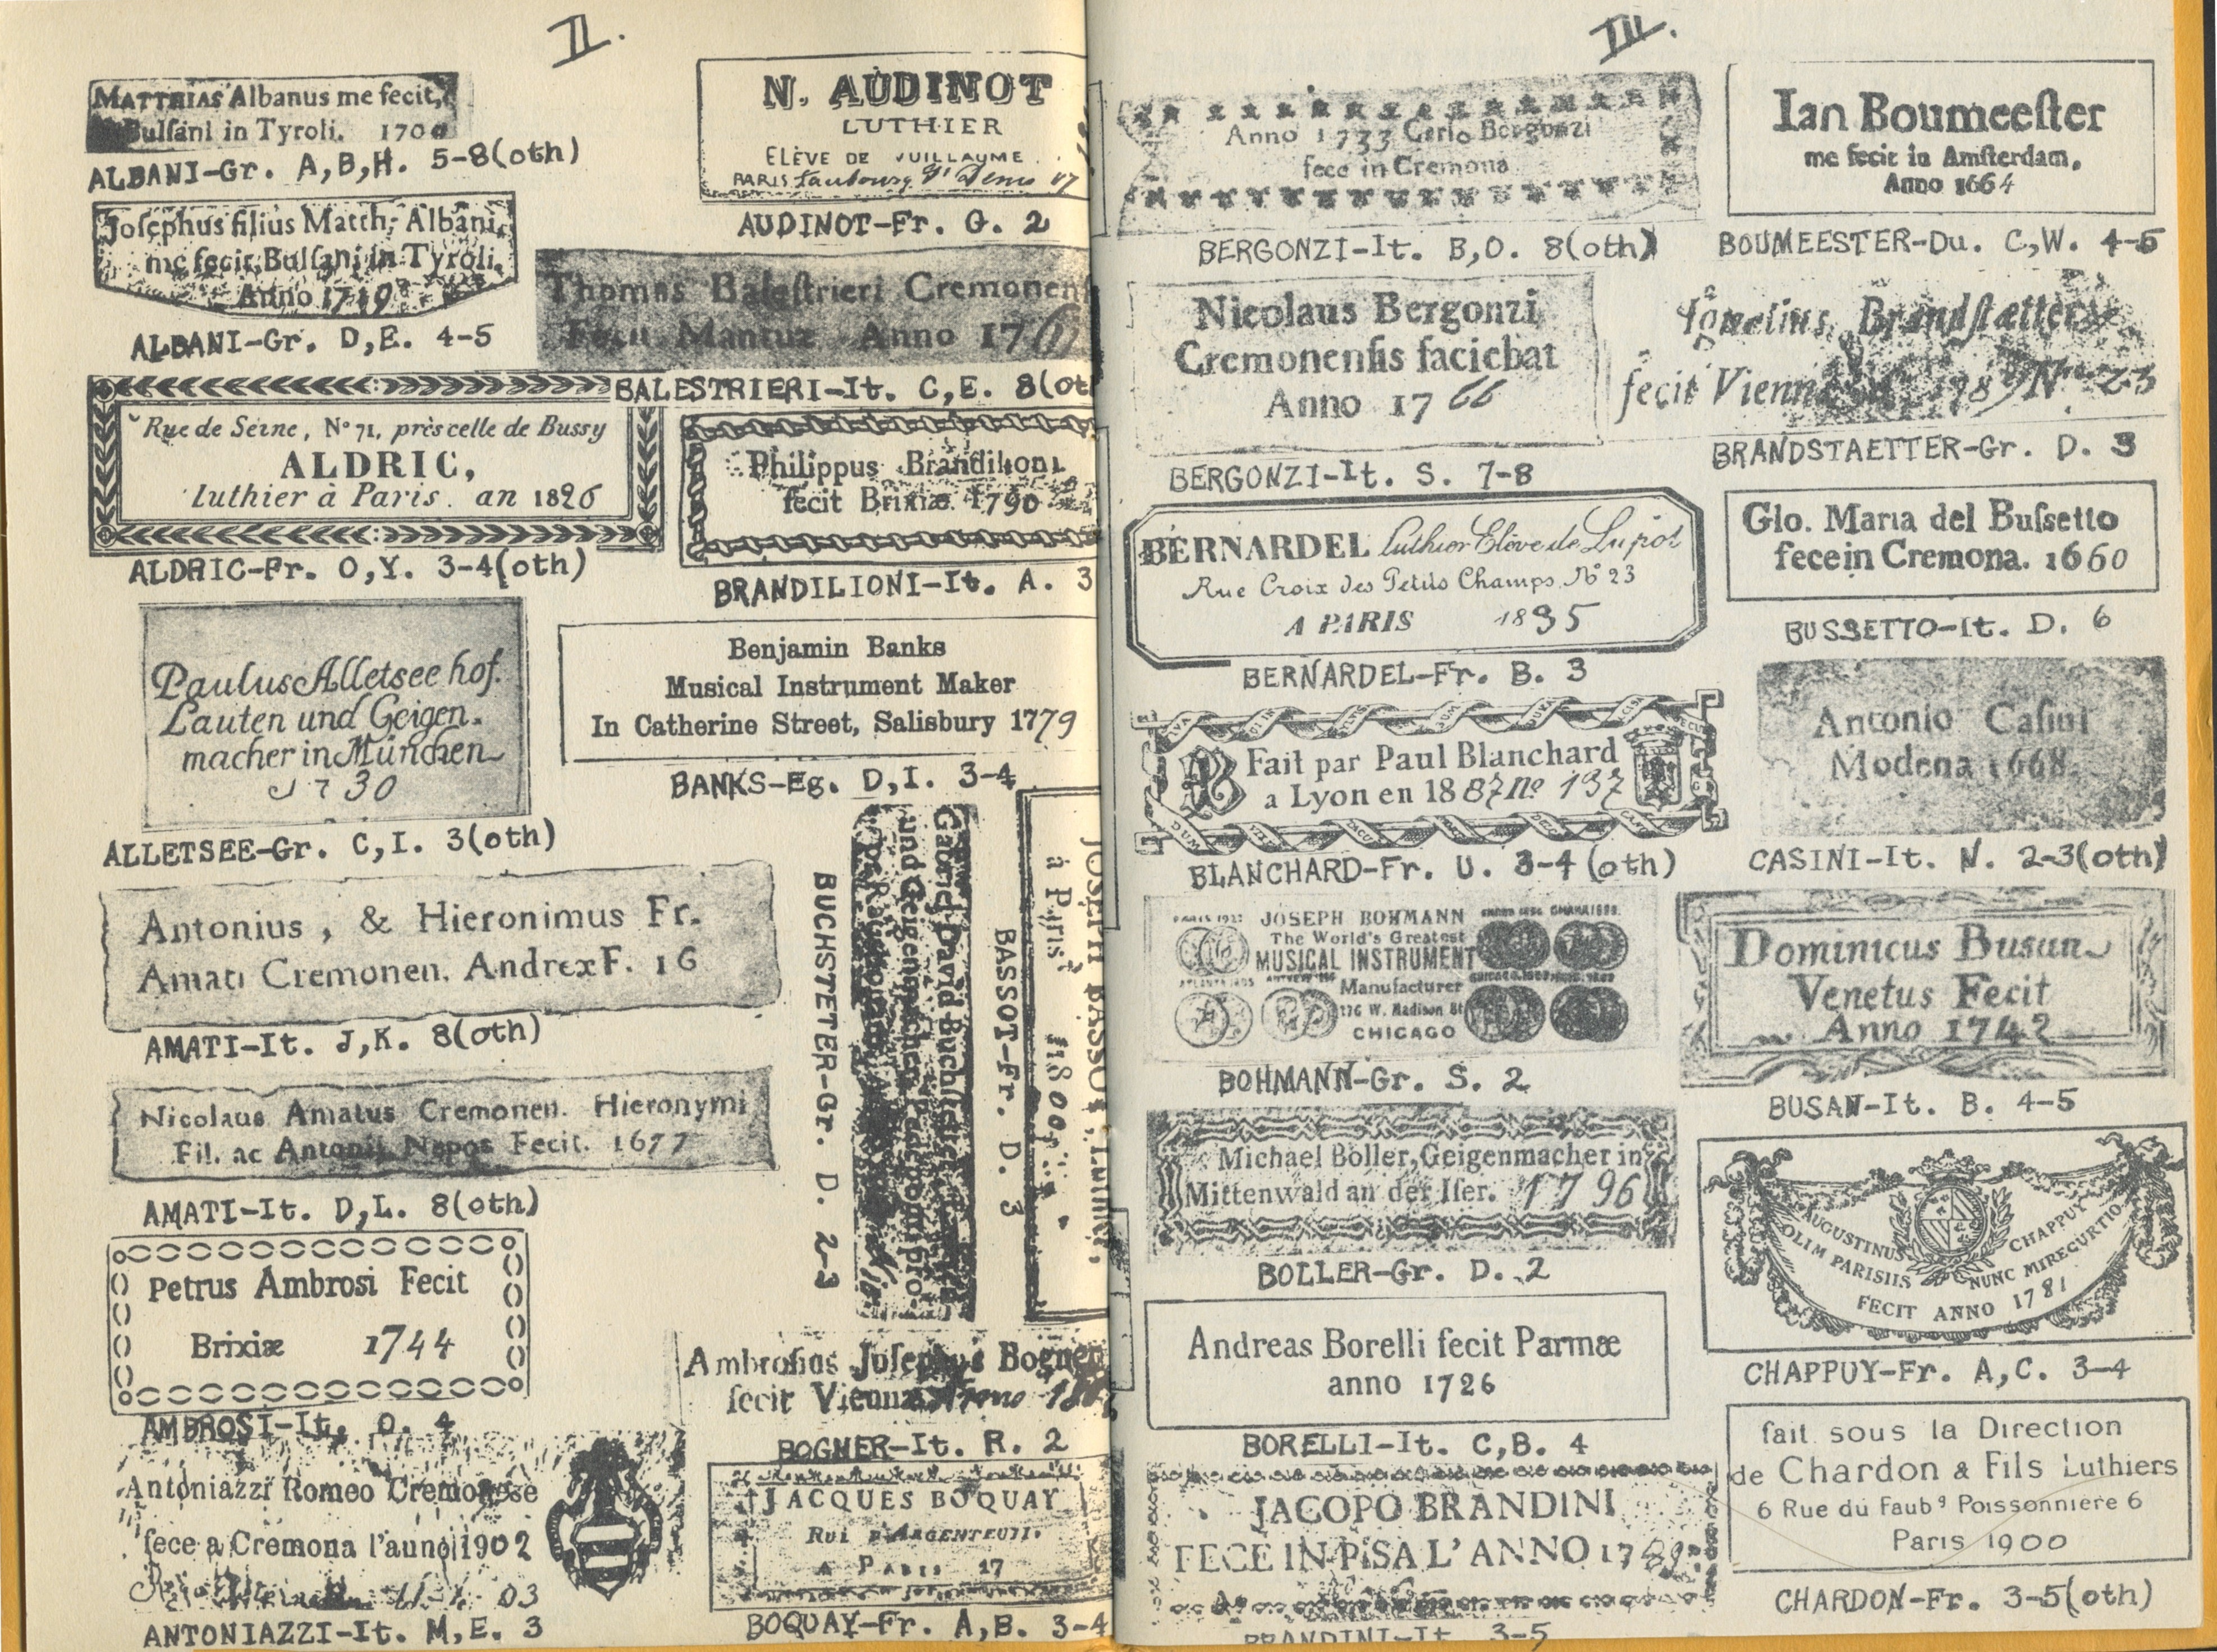 II.
MATTHIAS Albanus me fecit,
Bulſani in Tyroli. 1700
ALBANI-Gr. A,B,H. 5-8(oth)
Joſephus filius Matth; Albani,
me fecit, Bulſani in Tyroli,
Anno 1719
ALBANI-Gr. D,E. 4-5
Rue de Seine, N° 71, près celle de Bussy
ALDRIC,
luthier à Paris. an 1826
ALDRIC-Fr. O,Y. 3-4(oth)
Paulus Alletsee hof.
Lauten und Geigen.
macher in München
1730
ALLETSEE-Gr. C,I. 3(oth)
Antonius, & Hieronimus Fr.
Amati Cremonen. Andreæ F. 16
AMATI-It. J,K. 8(oth)
Nicolaus Amatus Cremonen. Hieronymi
Fil. ac Antonij Nepos Fecit. 1677
AMATI-It. D,L. 8(oth)
Petrus Ambrosi Fecit
Brixiæ 1744
AMBROSI-It. O. 4
Antoniazzi Romeo Cremonese
fece a Cremona l'anno 1902
03
ANTONIAZZI-It. M,E. 3
N. AUDINOT
LUTHIER
ELÈVE DE VUILLAUME
PARIS faubourg St Denis 17
AUDINOT-Fr. G. 2
Thomas Baleſtrieri Cremonen
Fecit Mantuæ Anno 17
BALESTRIERI-It. C,E. 8(ot
Philippus Brandilioni
fecit Brixiæ. 1790
BRANDILIONI-It. A. 3
Benjamin Banks
Musical Instrument Maker
In Catherine Street, Salisbury 1779
BANKS-Eg. D,I. 3-4
JOSEPH BASSOT, Luthier,
à Paris 1800
BASSOT-Fr. D. 3
Gabriel David Buchſtetter
und Geigenmacher pro-
BUCHSTETER-Gr. D. 2-3
Ambroſius Joſephus Bogner
fecit Viennæ Anno 18
BOGNER-It. R. 2
JACQUES BOQUAY
RUE D'ARGENTEUIL
A PARIS 17
BOQUAY-Fr. A,B. 3-4
III.
Anno 1733 Carlo Bergonzi
fece in Cremona
BERGONZI-It. B,O. 8(oth)
Nicolaus Bergonzi
Cremonenſis faciebat
Anno 1766
BERGONZI-It. S. 7-8
BERNARDEL Luthier Elève de Lupot
Rue Croix des Petits Champs N° 23
A PARIS 1835
BERNARDEL-Fr. B. 3
Fait par Paul Blanchard
a Lyon en 1887 no 137
BLANCHARD-Fr. U. 3-4 (oth)
JOSEPH BOHMANN
The World's Greatest
MUSICAL INSTRUMENT
Manufacturer
W. Madison St
CHICAGO
BOHMANN-Gr. S. 2
Michael Böller, Geigenmacher in
Mittenwald an der Iſer. 1796
BOLLER-Gr. D. 2
Andreas Borelli fecit Parmæ
anno 1726
BORELLI-It. C,B. 4
JACOPO BRANDINI
FECE IN PISA L'ANNO 1789
BRANDINI-It. 3-5
Ian Boumeeſter
me fecit in Amſterdam,
Anno 1664
BOUMEESTER-Du. C,W. 4-5
Brandſtætter
fecit Viennæ 1789 N° 23
BRANDSTAETTER-Gr. D. 3
Gio. Maria del Buſsetto
fece in Cremona. 1660
BUSSETTO-It. D. 6
Antonio Caſini
Modena 1668.
CASINI-It. N. 2-3(oth)
Dominicus Busan
Venetus Fecit
Anno 1742
BUSAN-It. B. 4-5
AUGUSTINUS CHAPPUY
OLIM PARISIIS NUNC MIRECURTIO
FECIT ANNO 1781
CHAPPUY-Fr. A,C. 3-4
fait sous la Direction
de Chardon & Fils Luthiers
6 Rue du Faubg Poissonniere 6
Paris 1900
CHARDON-Fr. 3-5(oth)